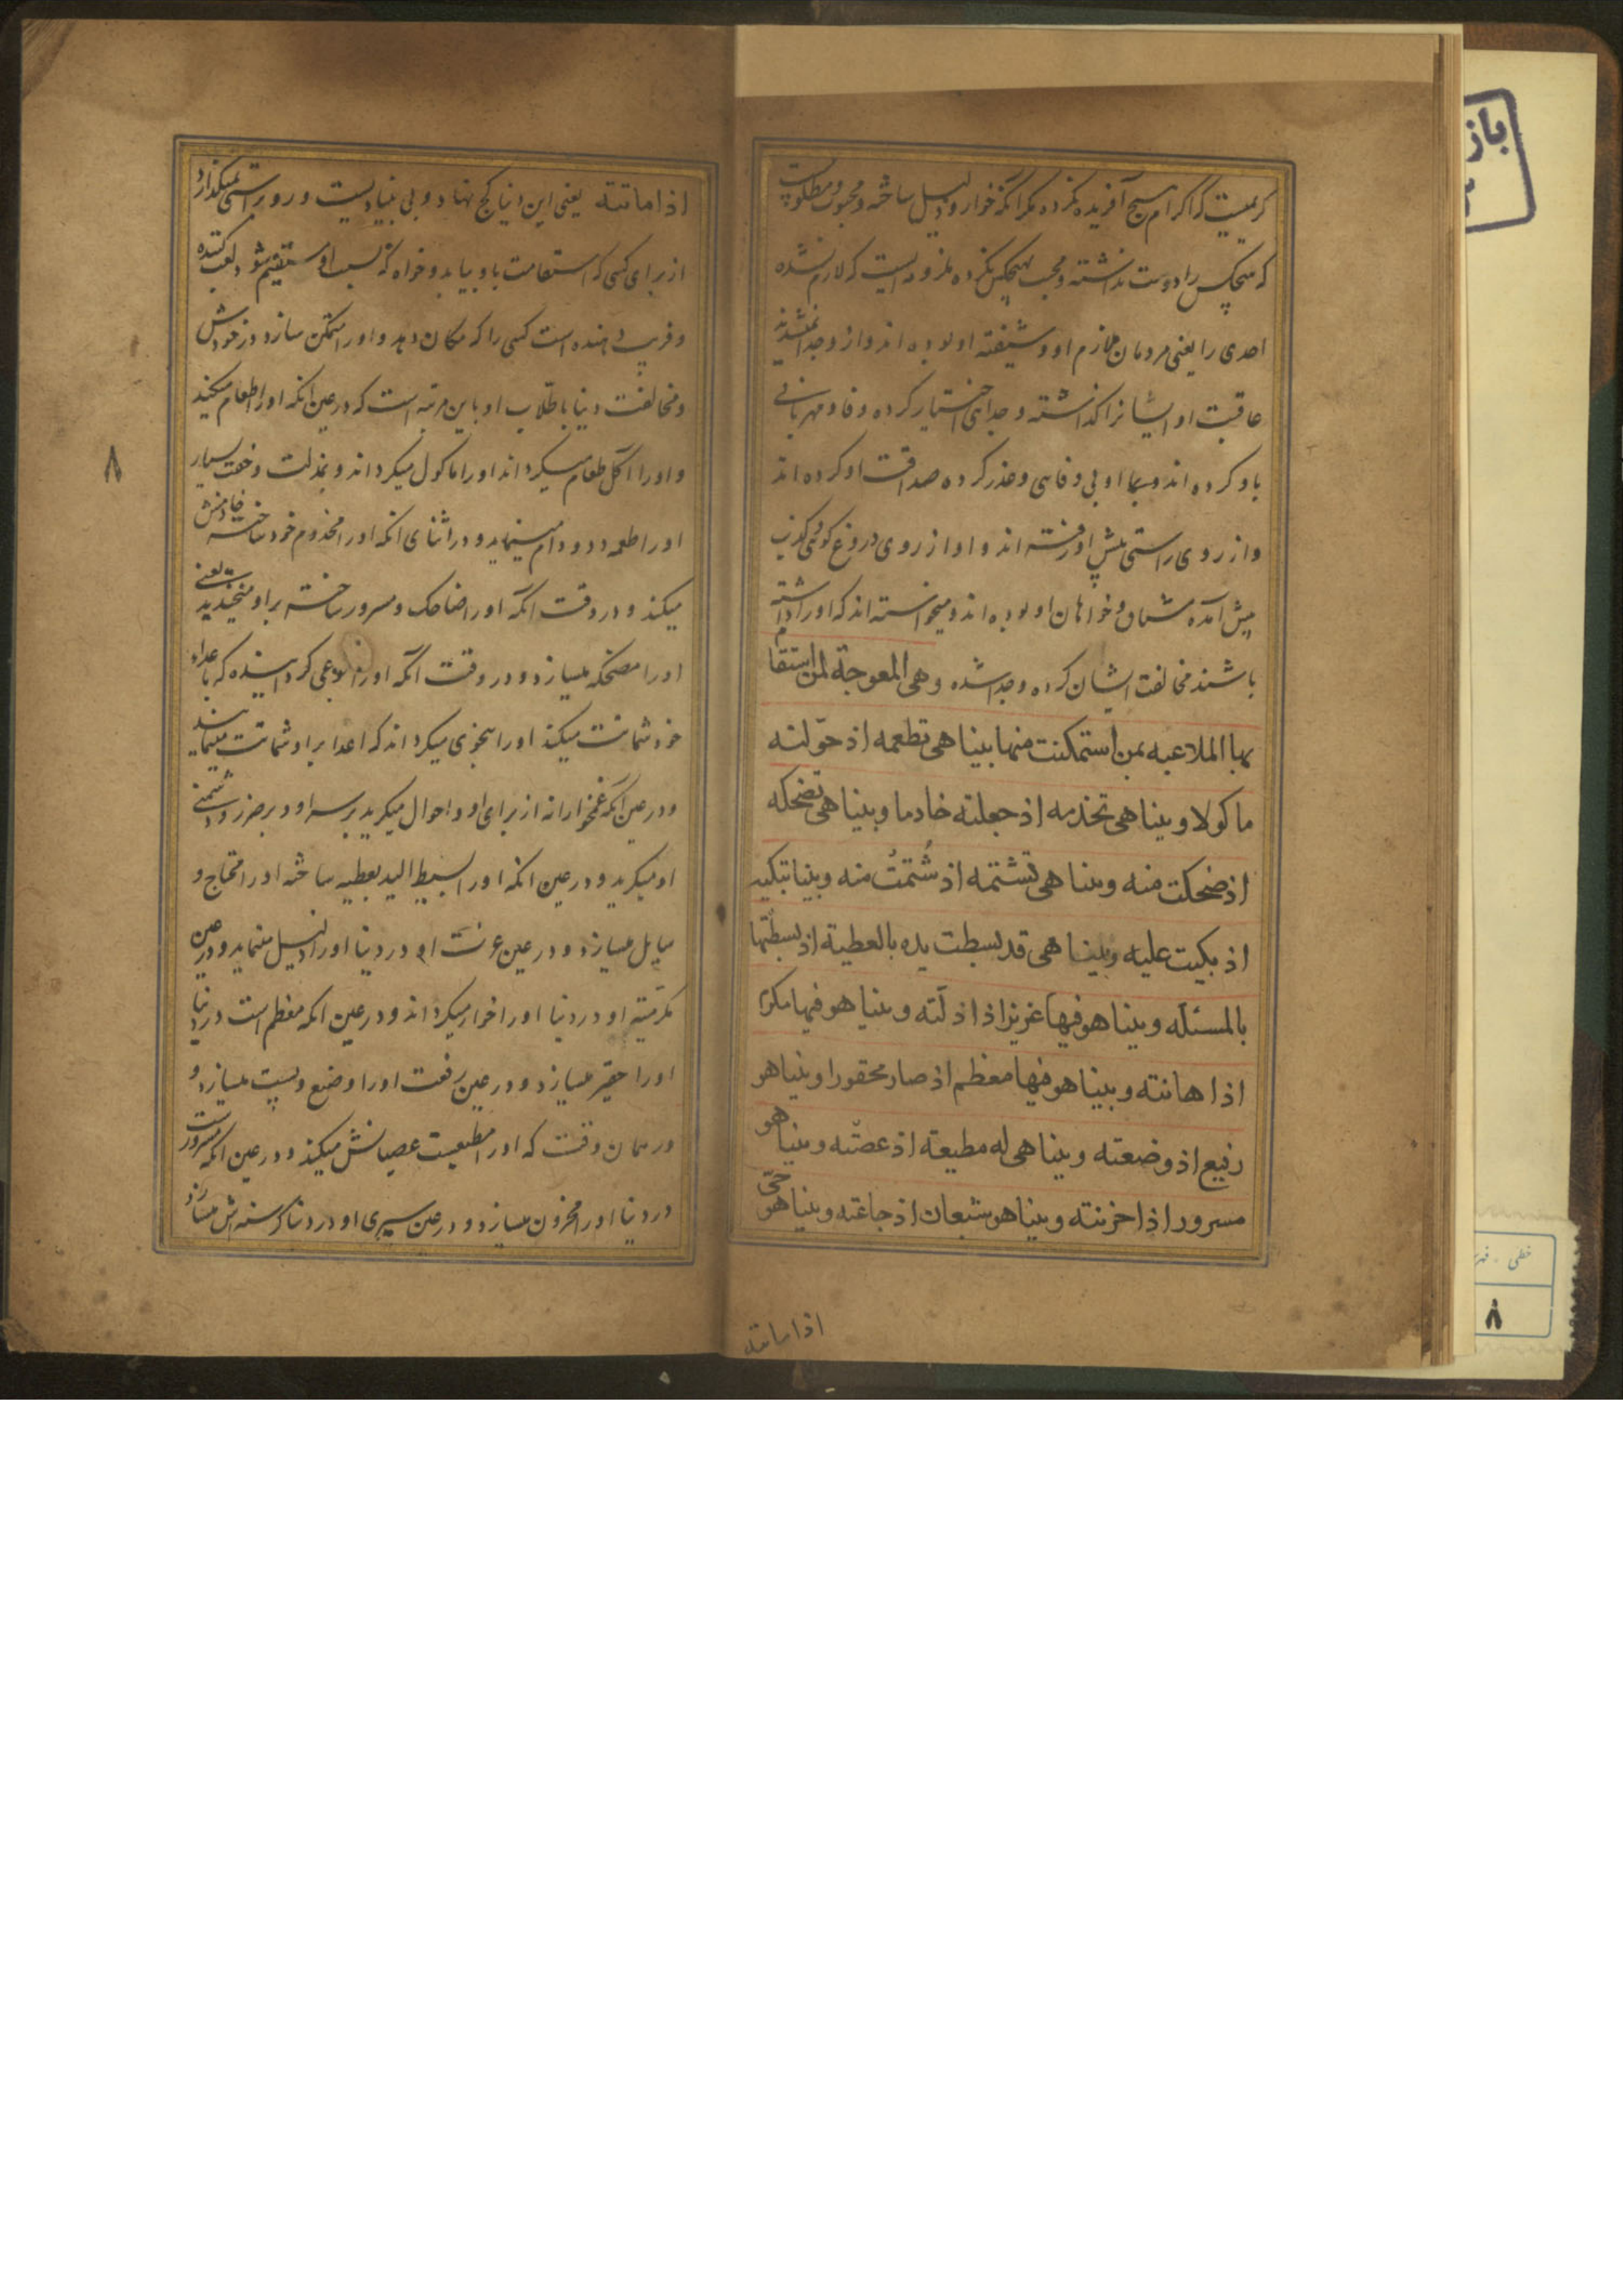 کریمیست که اکرام هیچ آفریده نکرده مگر آنکه خوار و ذلیل ساخته و محبوب و مطلوبیست
که هیچکس را دوست نداشته و محب هیچکس نکرده ملزومه ایست که لازم نشده
احدی را یعنی مردمان ملازم او و شیفته او بوده اند و از وجدا نمیشدند
عاقبت او ایشانرا گذاشته و جدایی اختیار کرده وفا و مهربانی
باو کرده اند و بما او بی وفایی و غدر کرده صداقت او کرده اند
و از روی راستی پیش او رفته اند و او از روی دروغ گوئی و کذب
پیش آمده مشتاق و خواهان او بوده اند و میخواسته اند که او را داشته
باشند مخالفت ایشان کرده و جدا شده وهی المعوجة لمن استقا
بها الملاعبه بمن استمکنت منها بینا هی تطعمه اذ حوّلته
ماکولا و بینا هی تخدمه اذ جعلته خادما و بینا هی تضحکه
اذ ضحکت منه وبینا هی تشتمه اذ شُتمتُ منه وبینا تبکیه
اذ بکیت علیه وبینا هی قد بسطت یده بالعطیة اذ بسطتها
بالمسئله وبینا هو فیها عزیزا اذ اذلّته وبینا هو فیها مکرّما
اذ اهانته وبینا هو فیها معظم اذ صار محقورا وبینا هو
رفیع اذ وضعته وبینا هی له مطیعة اذ عصته وبینا هو
مسرور اذ احزنته وبینا هو شبعان اذ جاعته وبینا هو حیّ
اذا ماتته
اذا ماتته یعنی این دنیا کج نهاد و بی بنیادیست و رو براستی نمیگذارد
از برای کسی که استقامت باو بیابد و خواه که بسبب او مستقیم شود لعب کننده
و فریب دهنده است کسی را که مکان دهد و او را متمکن سازد در خودش
و مخالفت دنیا با طلاب او باین مرتبه است که در عین آنکه او را طعام میکند
و او را آکل طعام میگرداند او را ماکول میگرداند و بمذلت و خفت بسیار
او را طعمه دد و دام مینماید و در اثنای آنکه او را مخدوم خود ساخته خادمش
میکند و در وقت آنکه او را ضاحک و مسرور ساخته بر او میخندید یعنی
او را مضحکه میسازد و در وقت آنکه او را بنوعی گردانیده که باعداء
خود شماتت میکند او را بنحوی میگرداند که اعدا بر او شماتت مینمایند
و در عین آنکه غمخوارانه از برای او و احوال میگرید بر سر او و بر ضرر و دشمنی
او میگرید و در عین آنکه او را بسیط الید بعطیه ساخته او را محتاج و
سایل میسازد و در عین عزت او در دنیا او را ذلیل مینماید و در عین
مکرمیته او در دنیا او را خوار میگرداند و در عین آنکه معظم است در دنیا
او را حقیر میسازد و در عین رفعت او را وضیع و پست میسازد و
در همان وقت که او را مطیعست عصیانش میکند و در عین آنکه مسرورست
در دنیا او را محزون میسازد و در عین سیری او در دنیا گرسنه اش میسازد
۸
باز
خطی - فهر
۸